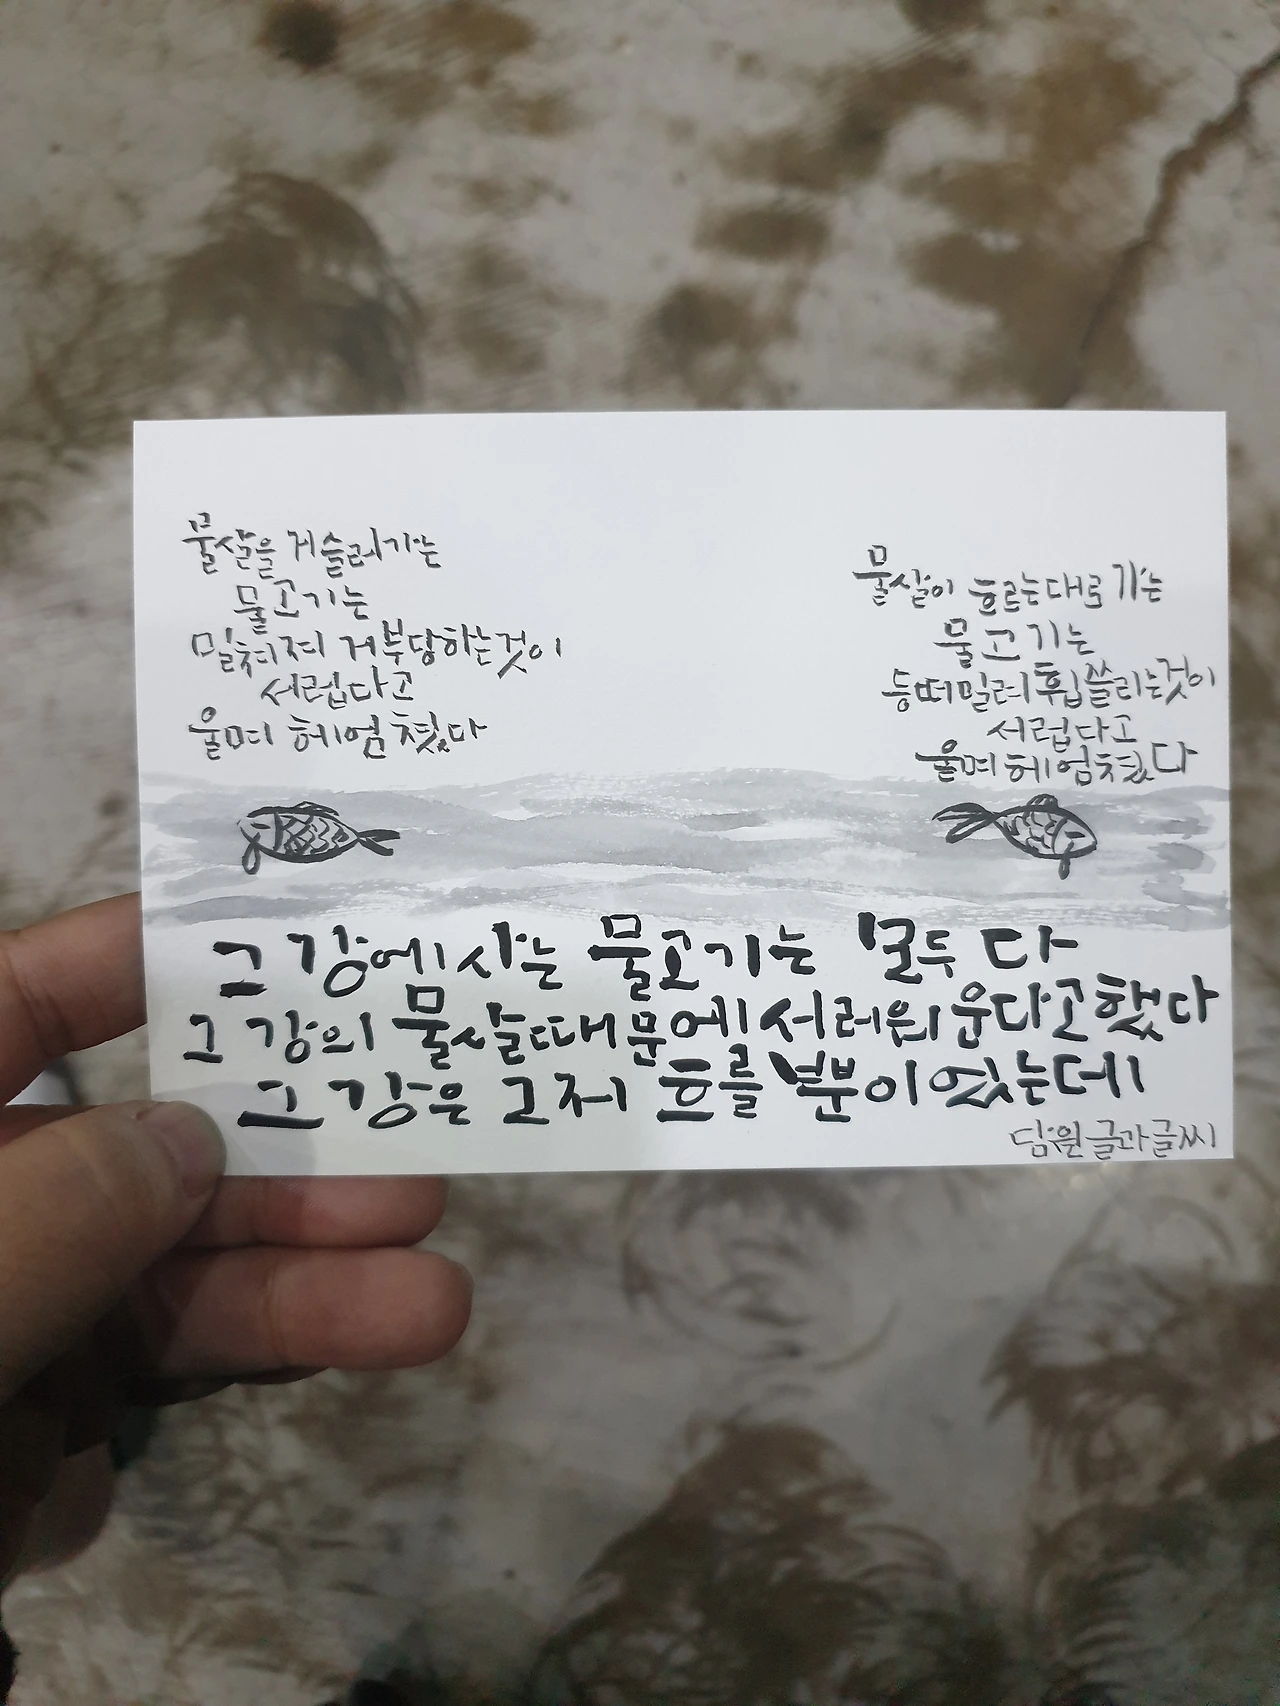 물살을 거슬러가는
물고기는
밀쳐져 거부당하는것이
서럽다고
울며 헤엄쳤다
물살이 흐르는대로 가는
물고기는
등떠밀려 휩쓸리는것이
서럽다고
울며 헤엄쳤다
그 강에 사는 물고기는 모두 다
그 강의 물살때문에 서러워 운다고 했다
그 강은 그저 흐를 뿐이었는데
담원 글과글씨